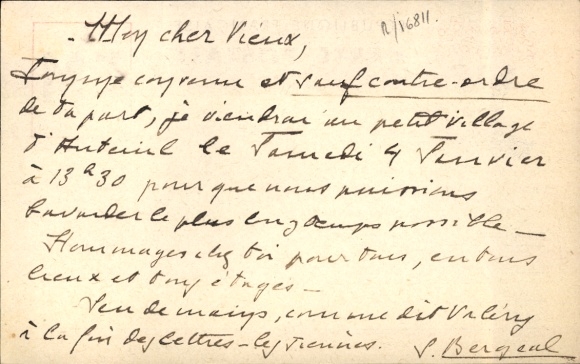 R/16811.
Mon cher Vieux,
Comme convenu et sauf contre-ordre
de ta part, je viendrai au petit village
d'Auteuil le Samedi 4 Janvier
à 13h30 pour que nous puissions
bavarder le plus longtemps possible —
Hommages chez toi pour tous, en tous
lieux et tous étages —
de mains, comme dit Valéry
à la fin des lettres - les siennes.